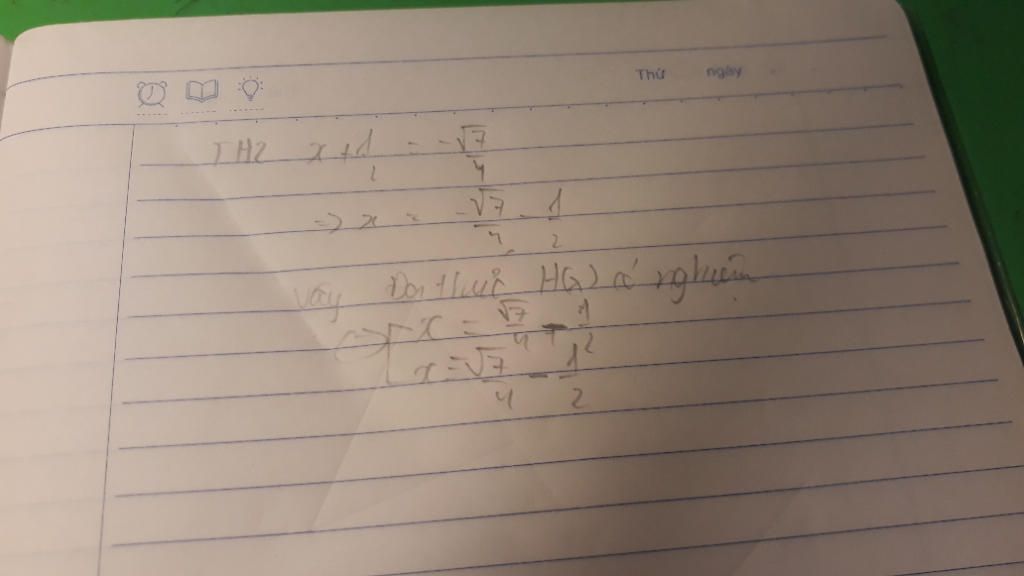 Thứ ngày
TH2 x + 1/2 = -√7/4
=> x = -√7/4 - 1/2
Vậy Đa thức H(x) có nghiệm
<=> [ x = √7/4 - 1/2
x = √7/4 - 1/2